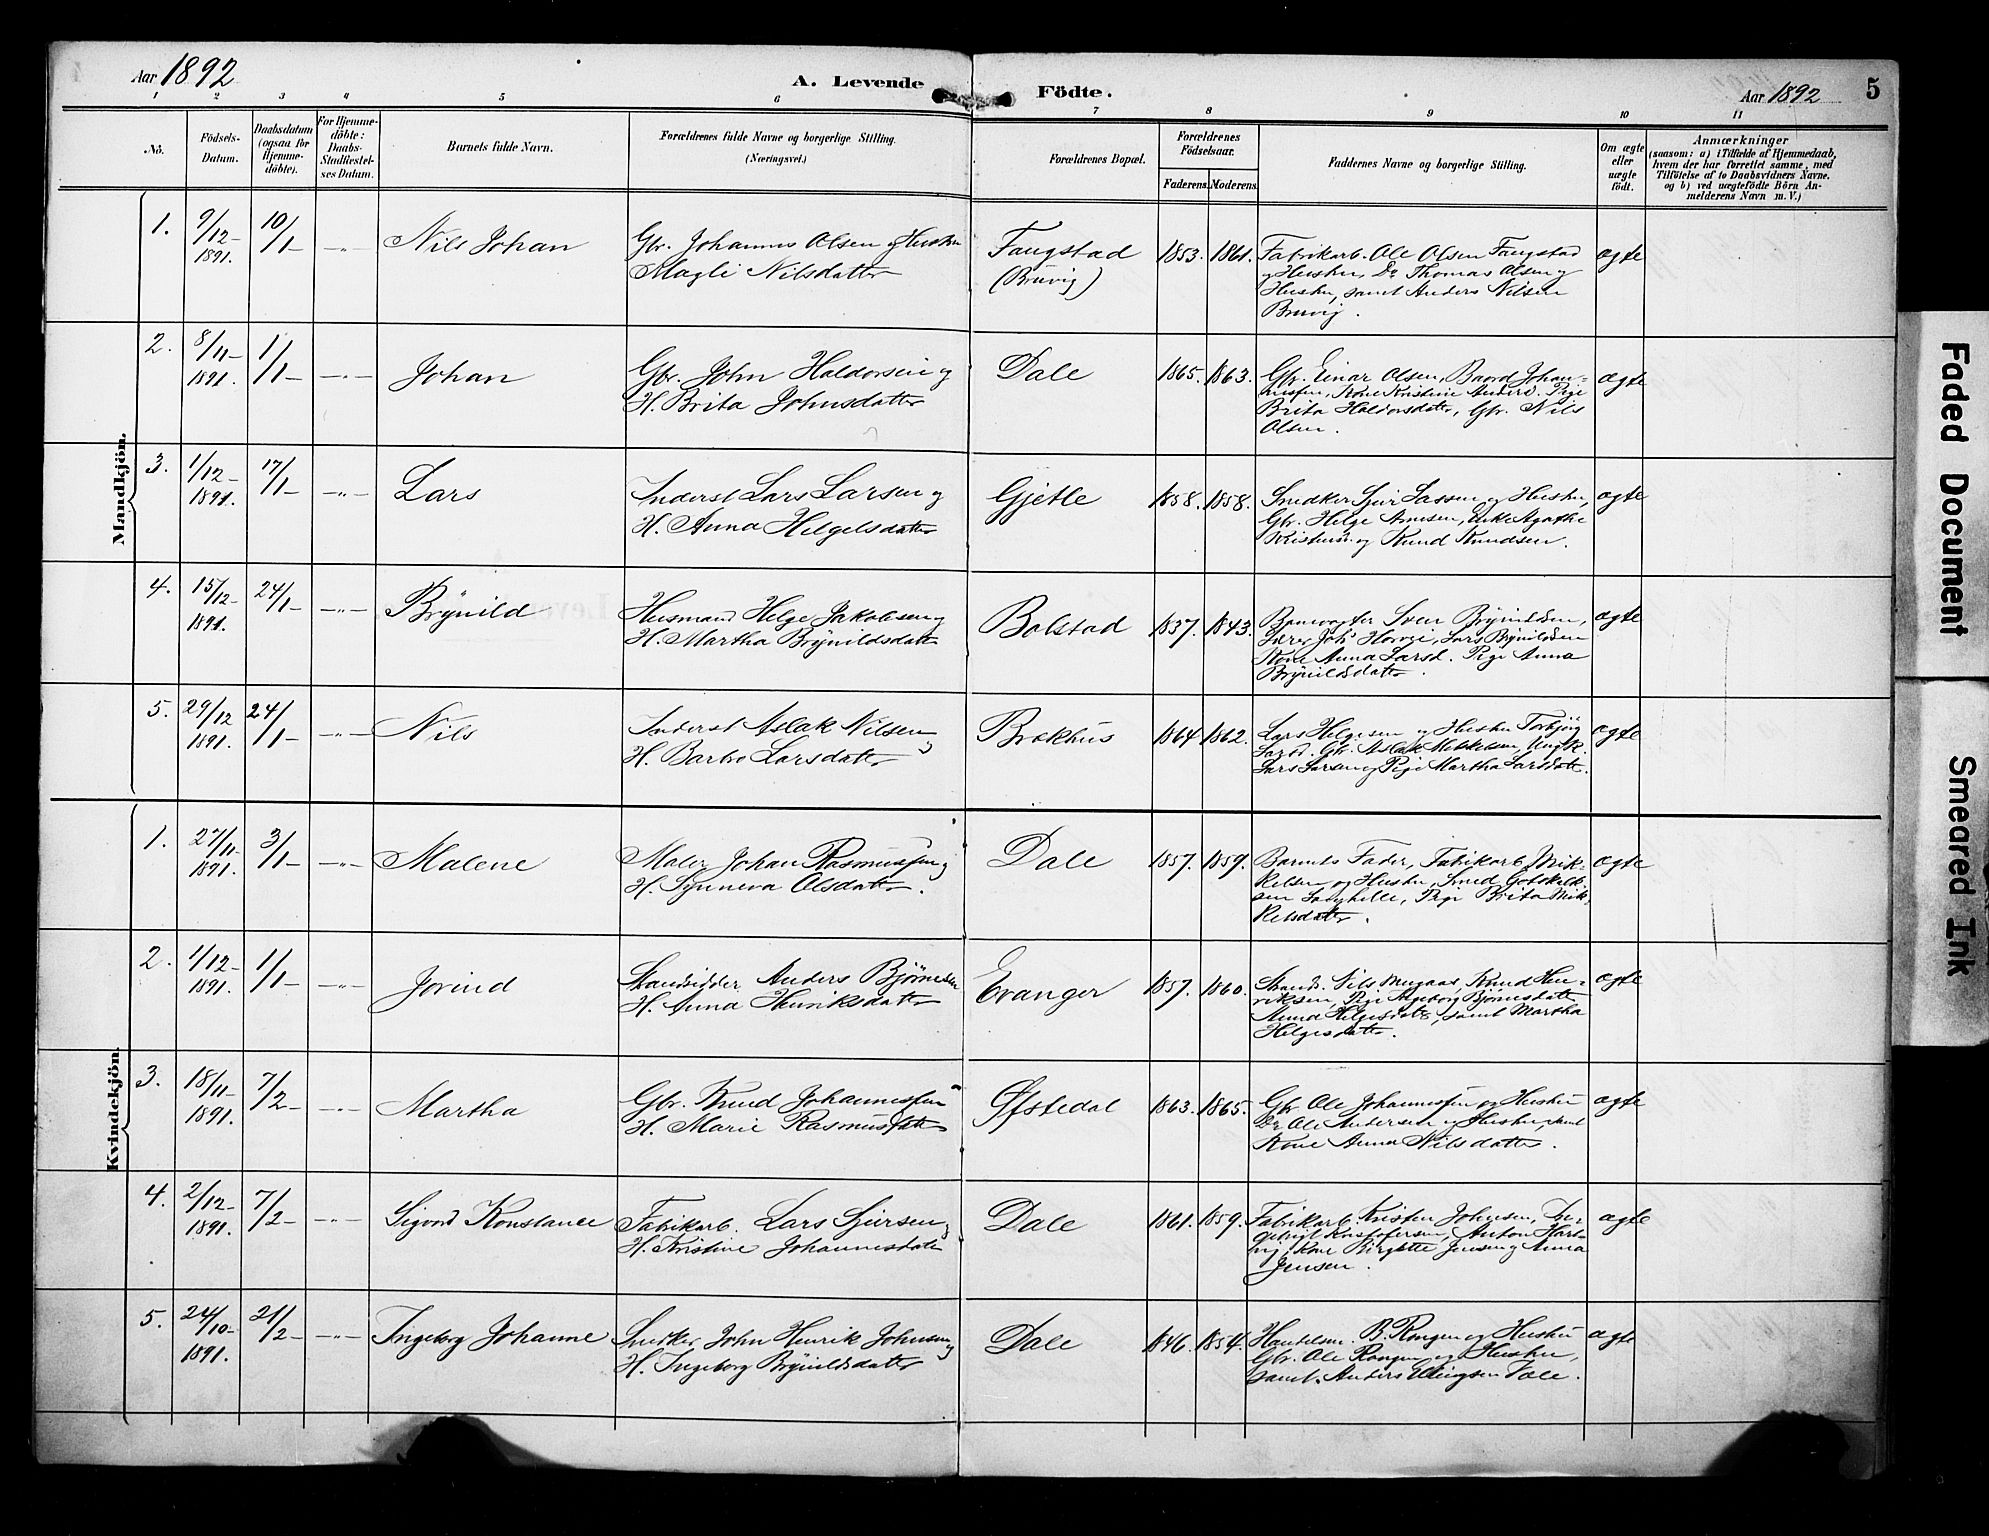 Aar 1892
A. Levende Födte.
Aar 1892
5
1 2 3 4 5 6 7 8 9 10 11
No.
Födsels-Datum.
Daabsdatum (ogsaa for Hjemme-döbte).
For Hjemme-döbte: Daabs-Stadfæstel-ses Datum.
Barnets fulde Navn.
Forældrenes fulde Navne og borgerlige Stilling.
(Næringsvei.)
Forældrenes Bopæl.
Forældrenes Födselsaar.
Faderens. Moderens.
Faddernes Navne og borgerlige Stilling.
Om ægte eller uægte födt.
Anmærkninger
(saasom: a) i Tilfælde af Hjemmedaab,
hvem der har forrettet samme, med
Tilföielse af to Daabsvidners Navne,
og b) ved uægtefödte Börn An-
melderens Navn m. V.)
Mandkjön.
1. 9/12- 1891. 10/1- -"- Nils Johan
Gbr. Johannes Olsen og Hustru
Magli Nilsdatter
Faugstad
(Bruvig)
1853. 1861.
Fabrikarb. Ole Olsen Faugstad
og Hustru, Do Thomas Olsen og
Hustru, samt Anders Nilsen
Bruvig.
ægte
2. 8/11- 1891. 1/1- -"- Johan
Gbr. John Haldorsen og
H. Brita Johnsdatter
Dale
1865. 1863.
Gbr. Einar Olsen, Baard Johan-
nessen, Kone Kristine Anders. Pige
Brita Haldorsdatter, Gbr. Nils
Olsen.
ægte
3. 1/12- 1891. 17/1- -"- Lars
Inderst Lars Larsen og
H. Anna Helgesdatter
Gjetle
1858. 1858.
Snedker Sjur Lassen og Hustru,
Gbr. Helge Arnesen, Enke Agathe
og Knud Knudsen.
ægte
4. 15/12- 1891. 24/1- -"- Brynild
Husmand Helge Jakobsen og
H. Martha Brynildsdatter
Bolstad
1837. 1843.
Banevogter Sven Brynildsen,
Lars Brynildsen
Kone Anna Larsd. Pige Anna
Brynildsdatter.
ægte
5. 29/12 1891. 24/1- -"- Nils
Inderst Aslak Nilsen og
H. Barbro Larsdatter
Brakhus
1864 1862.
Lars Helgesen og Hustru Torbjørg
Larsd. Gbr. Aslak Mikkelsen, Ungk.
Lars Larsen og Pige Martha Larsdatter.
ægte
Kvindekjön.
1. 27/11- 1891. 3/1- -"- Malene
Maler Johan Rasmussen og
H. Synneva Olsdatter.
Dale
1857. 1859.
Barnets Fader, Fabrikarb. Mik-
kelsen og Hustru, Smed Gotskalk-
sen, Pige Brita Mik-
kelsdatter.
ægte
2. 1/12- 1891. 1/1- -"- Jorind
Strandsidder Anders Bjørnesen
H. Anna Henriksdatter
Evanger
1857. 1860.
Strands. Nils Mugaas, Knud Hen-
riksen, Pige Ingeborg Bjørnesdatter
Anna Helgesdatter, samt Martha
Helgesdatter.
ægte
3. 18/11- 1891. 7/2- -"- Martha
Gbr. Knud Johannessen
H. Marie Rasmusdatter
Øfstedal
1863. 1865.
Gbr Ole Johannessen og Hustru
Do Ole Andersen og Hustru, samt
Kone Anna Nilsdatter.
ægte
4. 2/12- 1891. 7/2- -"- Sigvord Konstance
Fabrikarb. Lars Sjursen og
H. Kristine Johannesdatter
Dale
1861. 1859.
Fabrikarb. Kristen Johnsen, In-
gebrigt Kristofersen, Anton Hart-
vig, Kone Birgitte Jensen og Anna
Jensen.
ægte
5. 24/10- 1891. 21/2- -"- Ingeborg Johanne
Snedker John Henrik Johnsen og
H. Ingeborg Brynildsdatter
Dale
1846. 1854.
Handelsm. B. Rongen og Hustru
Gbr. Ole Rongen og Hustru,
samt Anders Ellingsen Dale.
ægte
Faded Document
Smeared Ink